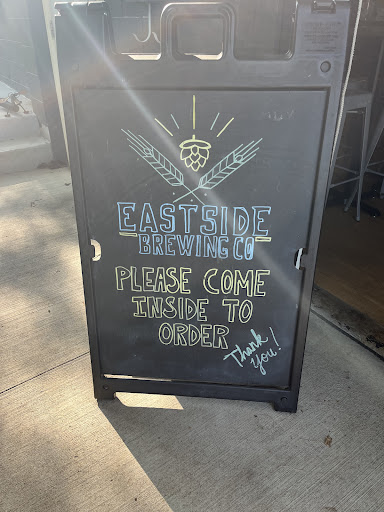 EASTSIDE
BREWING CO
PLEASE COME
INSIDE TO
ORDER
Thank
you!